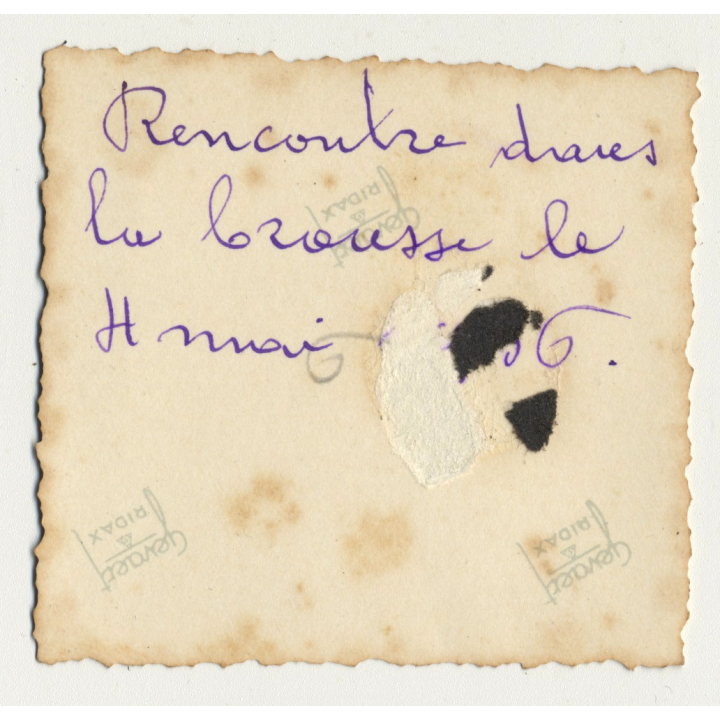 Rencontre dans
la brousse le
4 mai 56.
6
Gevaert
RIDAX
Gevaert
RIDAX
Gevaert
RIDAX